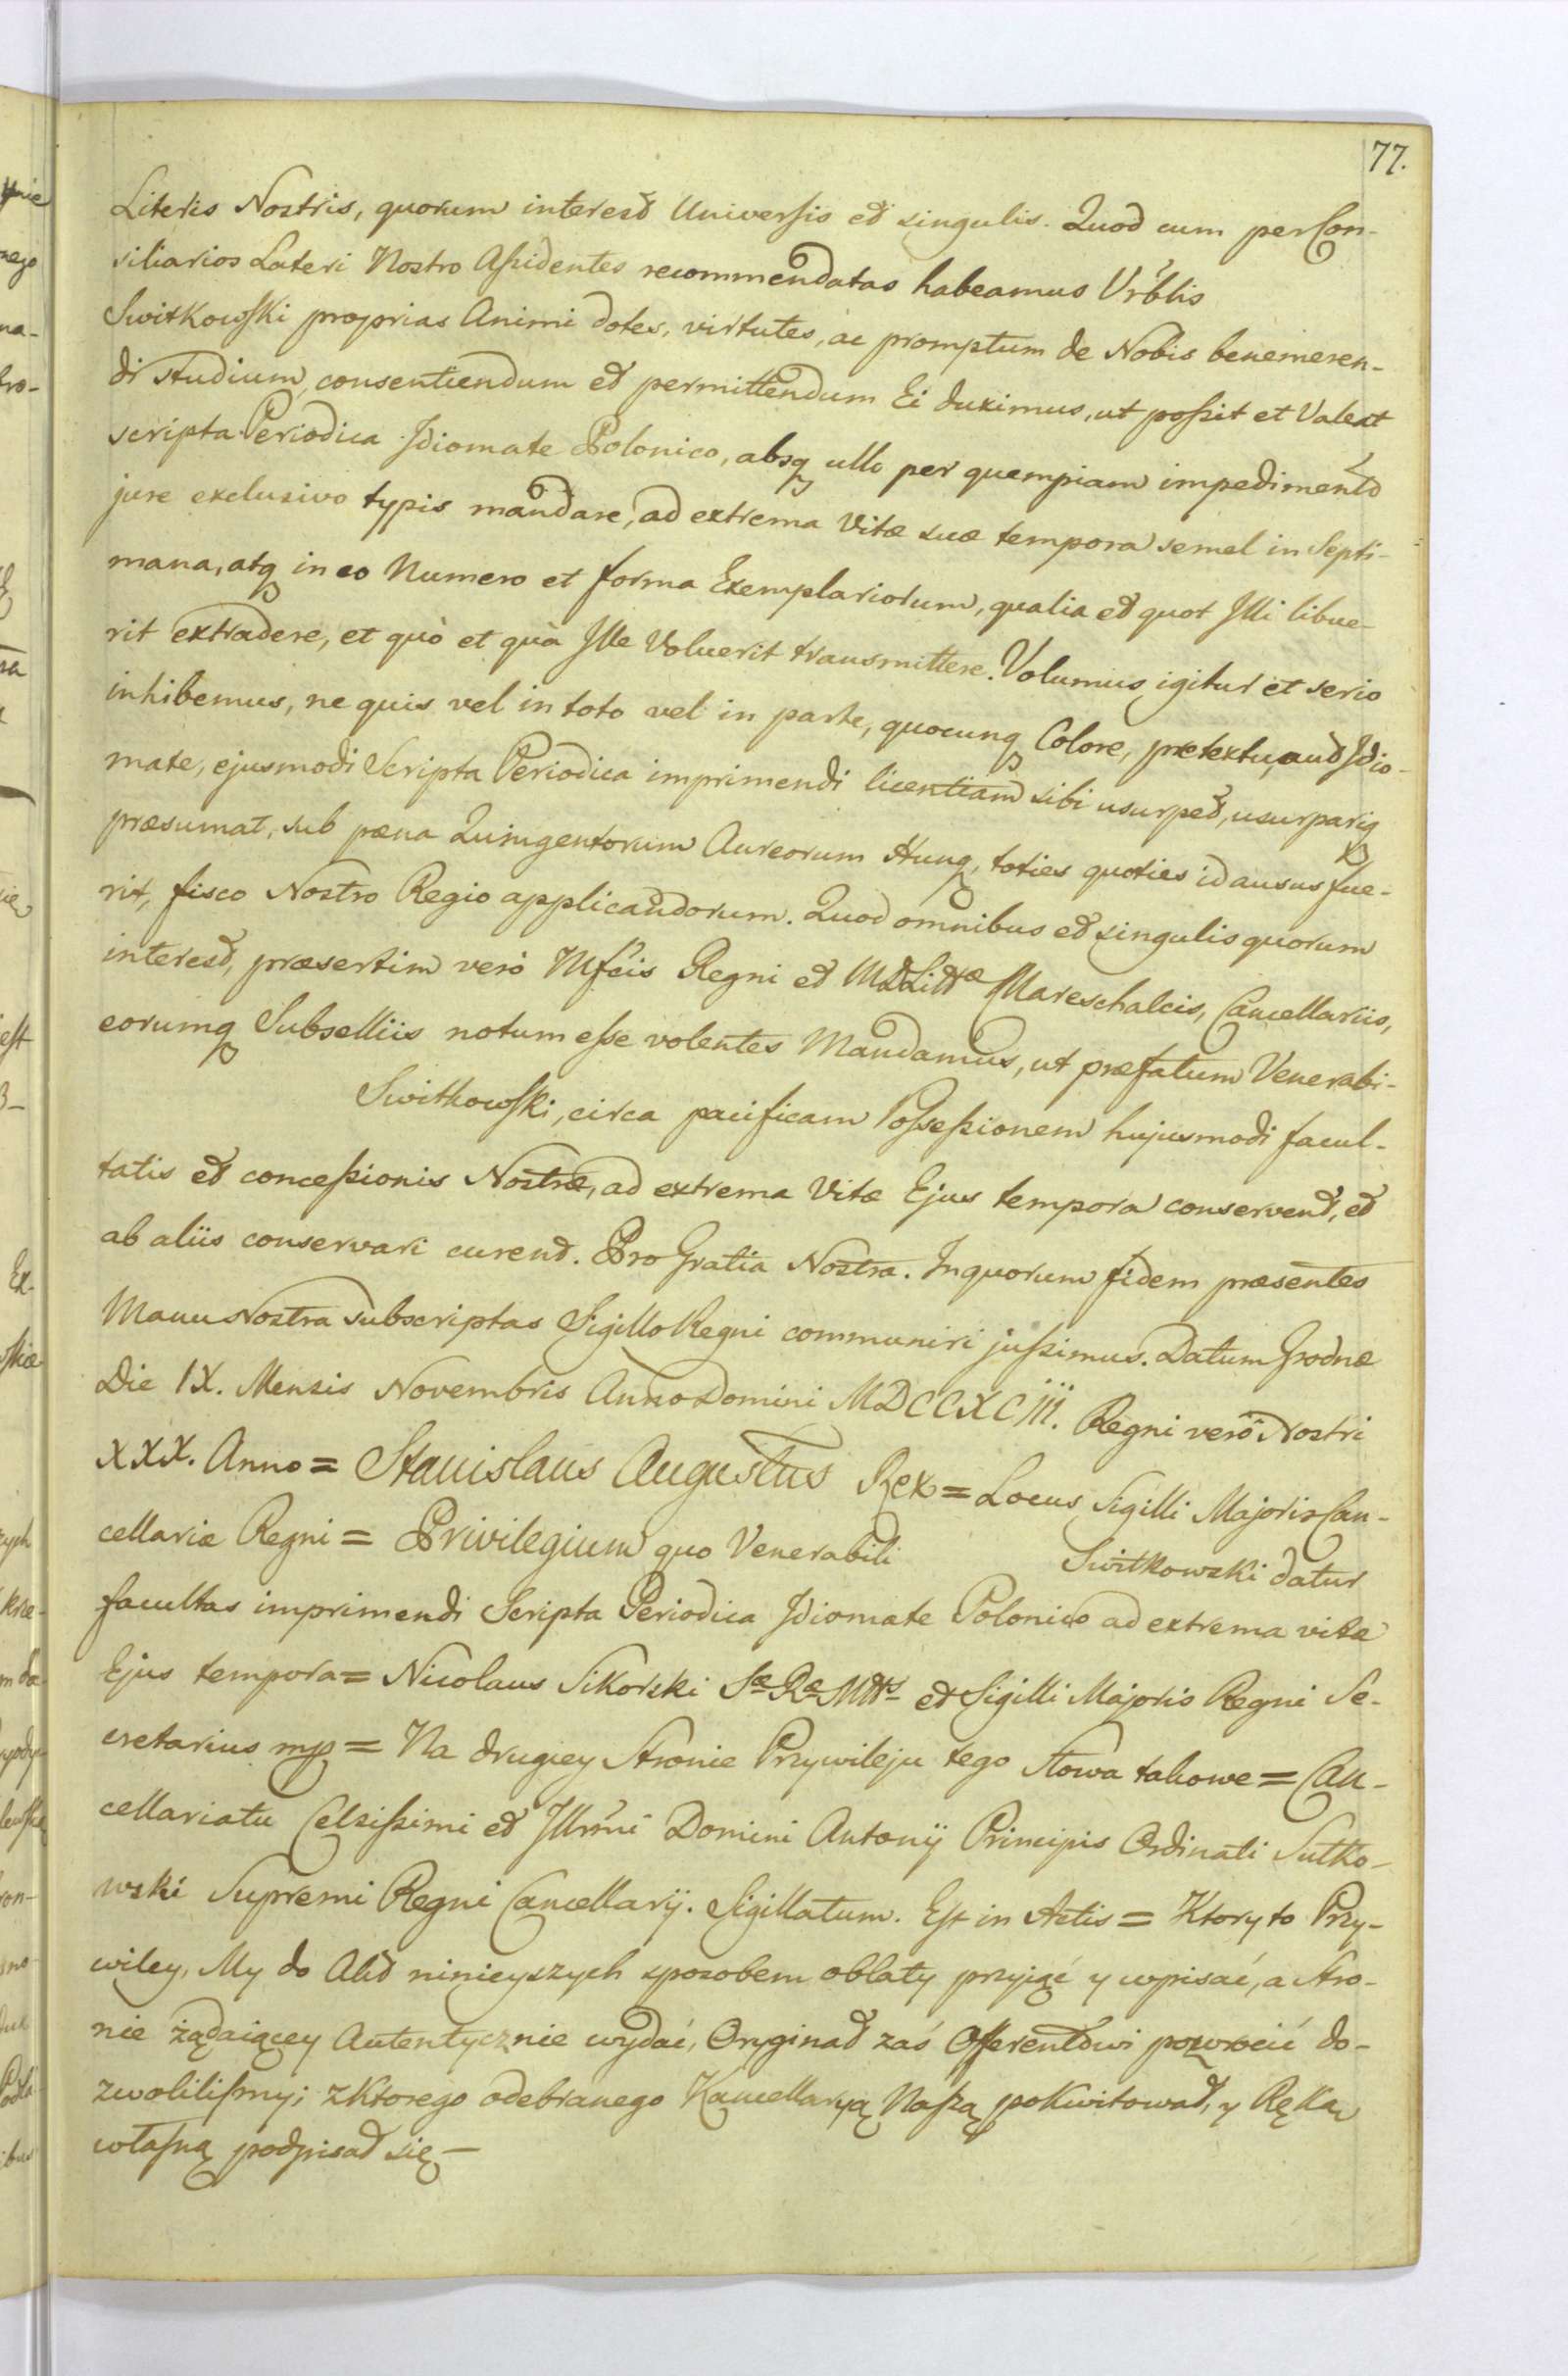 77.
Literis Nostris, quorum interest Universis et singulis. Quod cum per Con-
siliarios Lateri Nostro Aſsidentes recommendatas habeamus Vrblis
Switkowſki proprias Animi dotes, virtutes, ac promptum de Nobis benemeren-
di studium, consentiendum et permittendum Ei duximus, ut poſsit et Valeat
scripta Periodica Idiomate Polonico, absq ullo per quempiam impedimento
jure exclusivo typis mandare, ad extrema Vitæ suæ tempora semel in Septi-
mana, atq in eo Numero et forma Exemplariorum, qualia et quot Illi libue-
rit extradere, et quò et quà Ille Voluerit transmittere. Volumus igitur et serio
inhibemus, ne quis vel in toto vel in parte, quocunq Colore, prætextu, aut Idio-
mate, ejusmodi Scripta Periodica imprimendi licentiam sibi usurpet, usurpariq
præsumat, sub pæna Quingentorum Aureorum Hung, toties quoties id ausus fue-
rit, fisco Nostro Regio applicandorum. Quod omnibus et singulis quorum
interest, præsertim verò Mfcis Regni et MDLittæ Mareschalcis, Cancellariis,
eorumq Subselliis notum eſse volentes Mandamus, ut præfatum Venerabi-
Switkowſki, circa pacificam Poſseſsionem hujusmodi facul-
tatis et conceſsionis Nostræ, ad extrema Vitæ Ejus tempora conservent, et
ab aliis conservari curent. Pro Gratia Nostra. In quorum fidem præsentes
Manu Nostra subscriptas Sigillo Regni communiri juſsimus. Datum Grodnæ
Die IX. Mensis Novembris Anno Domini MDCCXCIII. Regni verò Nostri
XXX. Anno = Stanislaus Augustus Rex = Locus Sigilli Majoris Can-
cellariæ Regni = Privilegium quo Venerabili Switkowski datur
facultas imprimendi Scripta Periodica Idiomate Polonico ad extrema vitæ
Ejus tempora = Nicolaus Sikorski Sæ Ræ Mttis et Sigilli Majoris Regni Se-
cretarius mp = Na drugiey Stronie Przywileju tego Słowa takowe = Can-
cellariatu Celsiſsimi et Illrmi Domini Antonij Principis Ordinati Sułko-
wski Supremi Regni Cancellarij. Sigillatum. Eſt in Actis = Ktory to Przy-
wiley, My do Akt ninieyszych sposobem oblaty przyiąć y wpisać, a Stro-
nie żądaiącey Autentycznie wydać, Oryginał zaś Offerentowi powrocić do-
zwoliliſmy; z Ktorego odebranego Kancellaryą Naſzą pokwitował, y Ręką
właſną podpisał się —